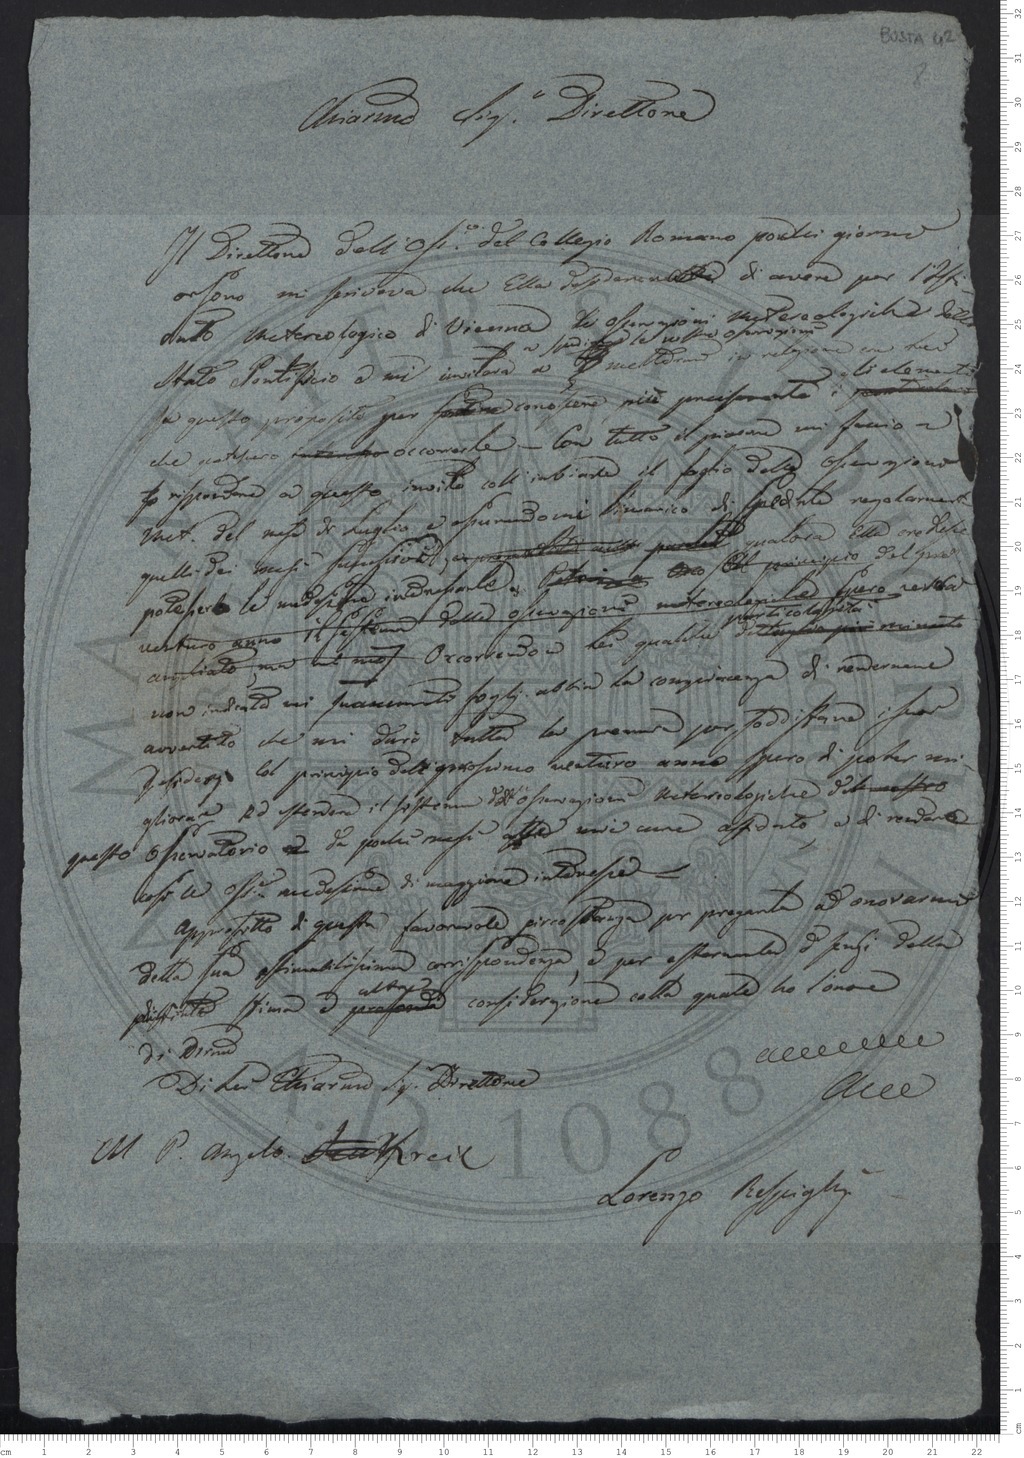 BUSTA 42
8
Chiarmo Sig.r Direttore
Il Direttore dell'Oss.rio del Collegio Romano pochi giorni
or sono mi scriveva che Ella desiderava di avere per l'Isti-
tuto Metereologico di Vienna le osservazioni Metereologiche dello
a spedirle le nostre osservazioni
Stato Pontificio e mi invitava a mettermi in relazione con Lei
gli elementi
a questo proposito per conoscere più precisamente i particolari
che potessero occorrerle — Con tutto il piacere mi faccio a
rispondere a questo invito coll'inviarle il foglio delle Osservazioni
Met. del mese di Luglio e assumendomi l'incarico di spedirle regolarmente
quelli dei mesi successivi, qualora Ella credesse
potessero le medesime interessarle. Col principio del pross.
venturo anno il sistema delle osservazioni metereologiche spero verrà
particolarità
ampliato, Occorrendo a Lei qualche dettaglio più
non indicato nei fogli abbia la compiacenza di rendermene
avvertito che mi darò tutta la premura per soddisfare i suoi
desiderj. Col principio del prossimo venturo anno spero di poter mi-
gliorare ed estendere il sistema dell'osservazioni Metereologiche del nostro
questo Osservatorio da pochi mesi alle mie cure affidato e di rendere
così le Oss.ni medesime di maggiore interesse —
Approfitto di questa favorevole circostanza per pregarla ad onorarmi
della sua stimatissima corrispondenza, e per esternarle i sensi della
alta
distinta stima e profonda considerazione colla quale ho l'onore
di Dirmi
Di Lei Chiarmo Sig.r Direttore
Al P. Angelo Kreil
Lorenzo Respighi
A.D. 1088